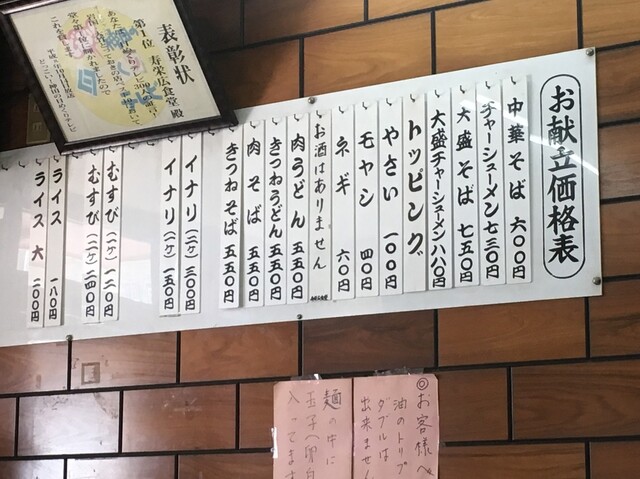 お献立価格表
中華そば 六〇〇円
チャーシューメン 七三〇円
大盛そば 七五〇円
大盛チャーシューメン 八八〇円
トッピング
やさい 一〇〇円
モヤシ 四〇円
ネギ 六〇円
お酒はありません
肉うどん 五五〇円
きつねうどん 五五〇円
肉そば 五五〇円
きつねそば 五五〇円
イナリ(二ケ) 三〇〇円
イナリ(一ケ) 一五〇円
むすび(一ケ) 一二〇円
むすび(二ケ) 二四〇円
ライス 一八〇円
ライス 大 二〇〇円
表彰状
第1位 寿栄広食堂 殿
◎お客様へ
油のトリプ
ダブルは
出来ません
麺の中に
玉子(卵白
入ってます